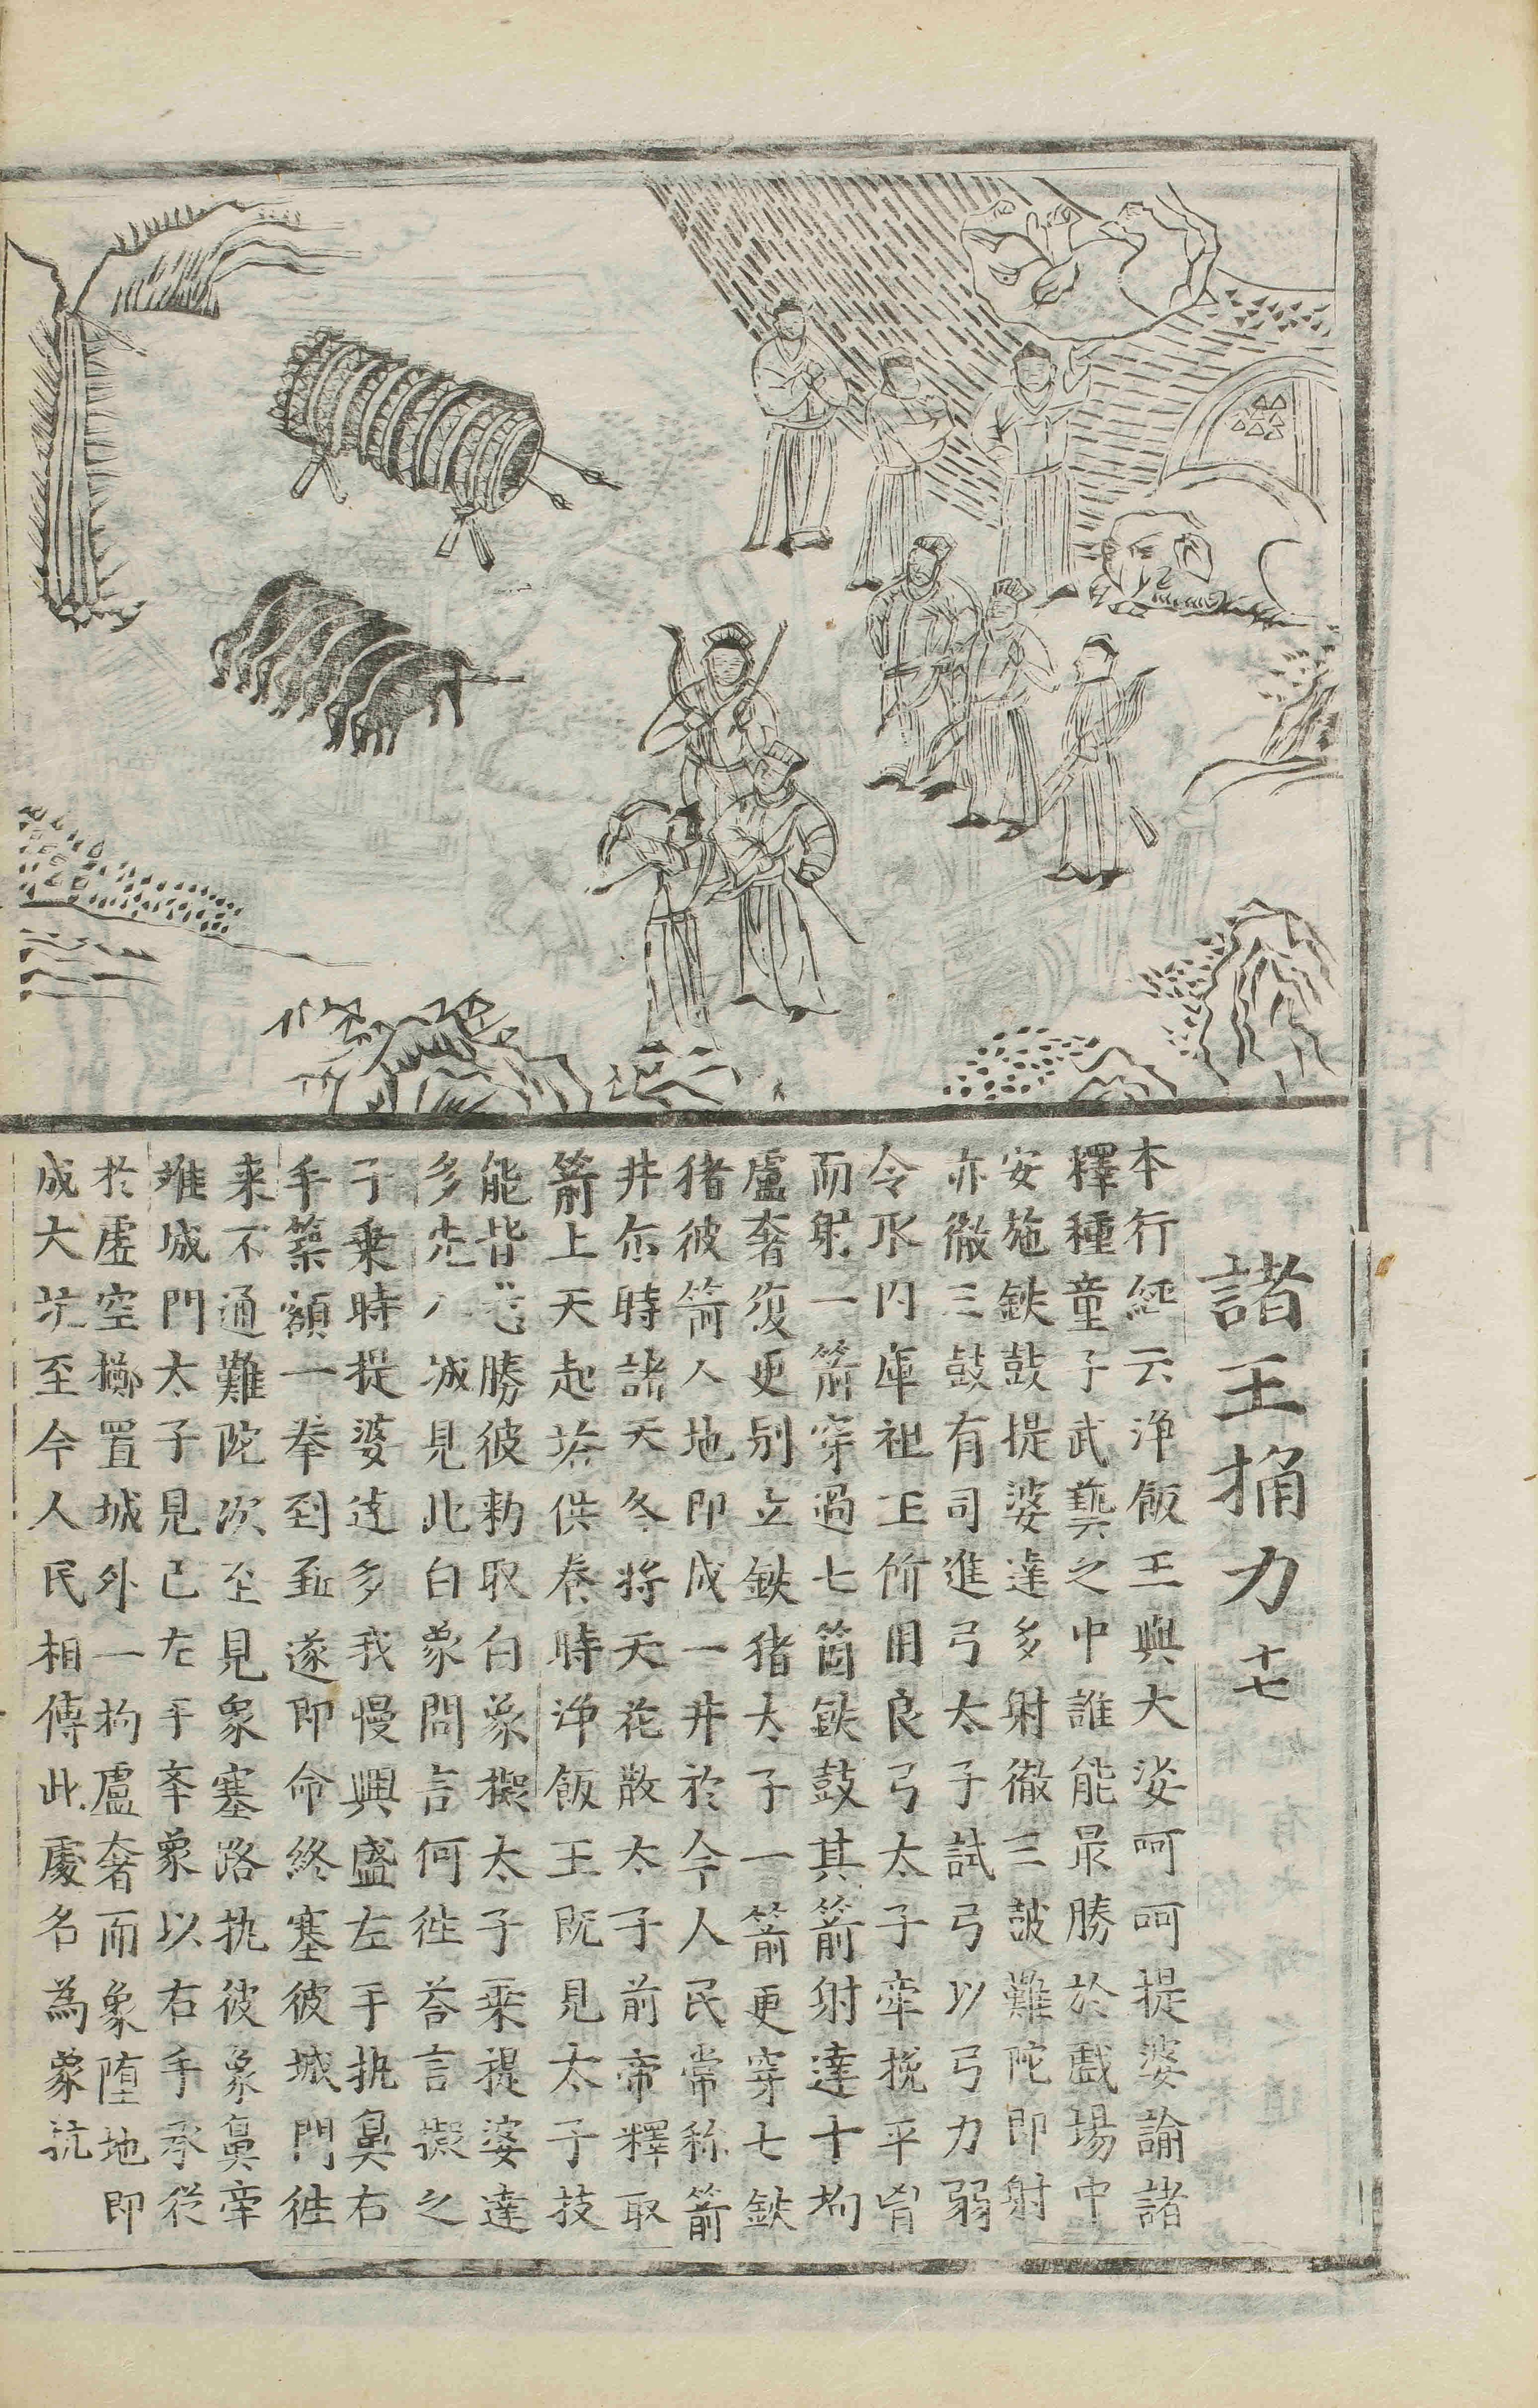 諸王捔力 十七
本行經云淨飯王與大婆呵呵提婆諭諸
釋種童子武藝之中誰能最勝於戲場中
安施鉄鼓提婆達多射徹三鼓難陀即射
亦徹三鼓有司進弓太子試弓以弓力弱
令取內庫祖王所用良弓太子牽挽平胷
而射一箭穿過七箇鉄鼓其箭射達十拘
盧奢復更別立鉄猪太子一箭更穿七鉄
猪彼箭入地即成一井於今人民常称箭
井尔時諸天各將天花散太子前帝釋取
箭上天起塔供養時淨飯王既見太子技
能皆悉勝彼勑取白象擬太子乗提婆達
多先入城見此白象問言何徃荅言擬之
子乗時提婆達多我慢興盛左手執鼻右
手築額一拳到地遂即命終塞彼城門徃
来不通難陀次至見象塞路執彼象鼻牽
離城門太子見已左手牽象以右手承從
於虛空擲置城外一拘盧奢而象墮地即
成大坑至今人民相傳此處名為象坑